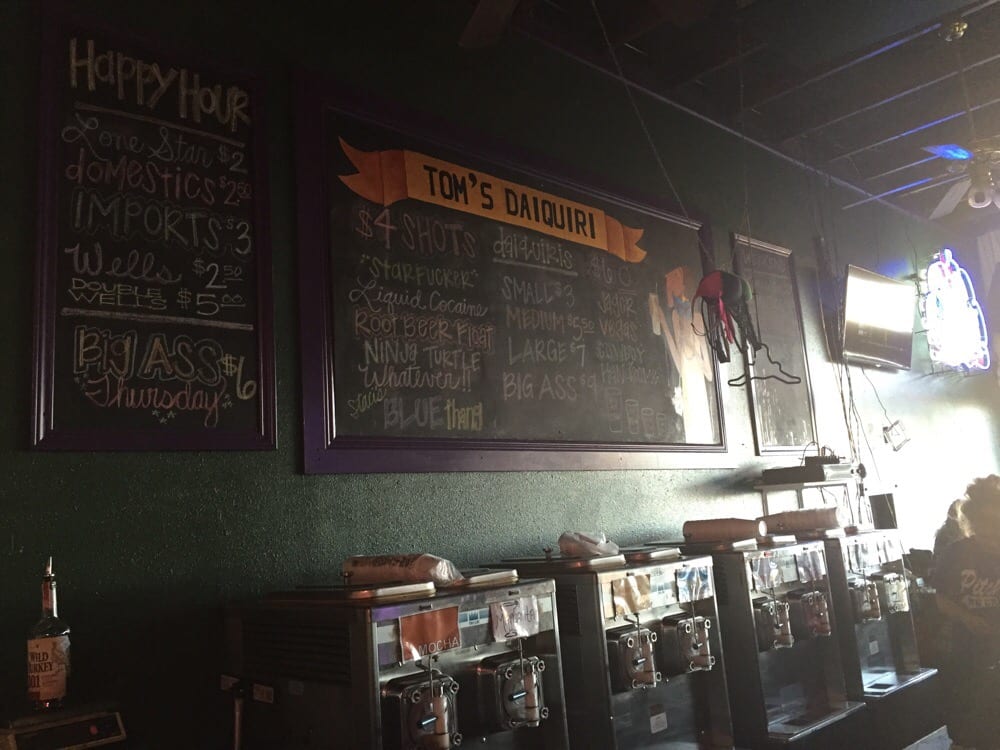 HAPPY HOUR
Lone Star $2
domestics $2.50
IMPORTS $3
Wells $2.50
DOUBLE WELLS $5.00
Big ASS $6
Thursday
TOM'S DAIQUIRI
$4 SHOTS
"STARFUCKER"
Liquid Cocaine
ROOT BEER Float
NINJA TURTLE
Whatever!!
BLUE thang
daiquiris
SMALL $3
MEDIUM $5.50
LARGE $7
BIG ASS $9
JAGER
VEGAS
WILD
TURKEY
101
MOCHA